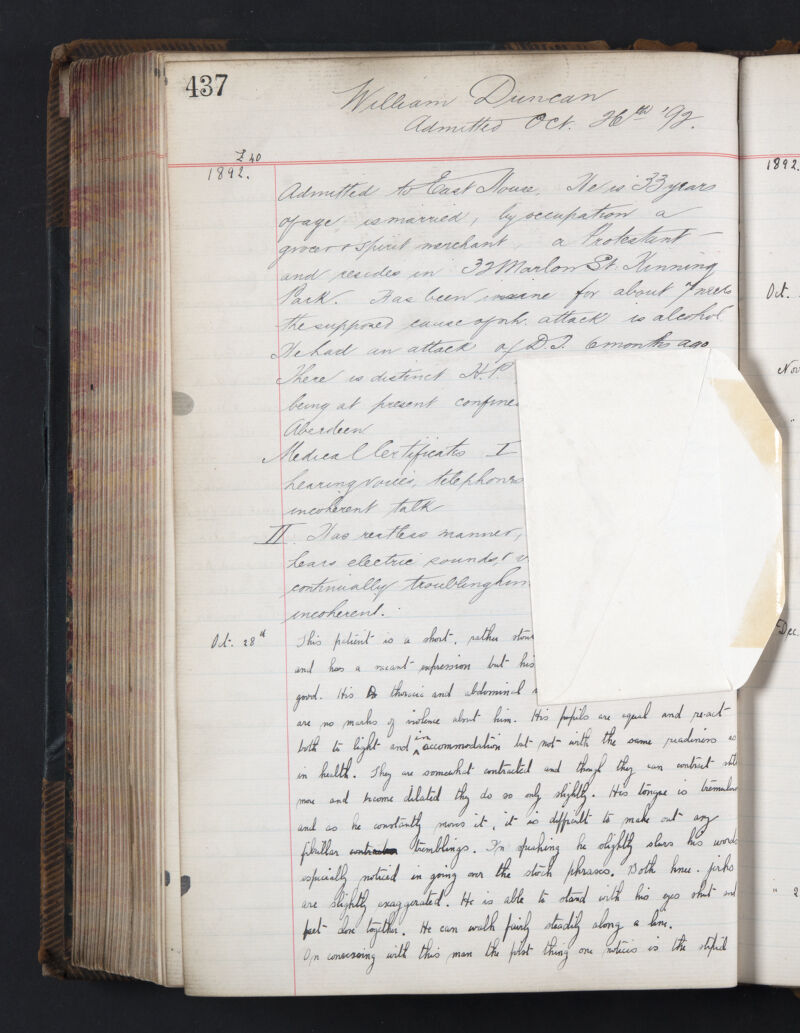 437
William Duncan
Admitted Oct. 26th '92.
£40
1892.
Admitted to East House. He is 33 years
of age, is married, by occupation a
grocer & spirit merchant, a Protestant
and resides in 32 Marlow St. Kinning
Park. Has been insane for about 7 weeks
the supposed cause of wh. attack is alcohol
He had an attack of D.T. 6 months ago
There is distinct H.P.
being at present confine
Aberdeen
Medical Certificates I
hearing voices, telephones
incoherent talk
II. Has restless manner,
hears electric sounds, & v
continually troubling him
incoherent.
Oct. 28th
This patient is a short, rather stout
and has a vacant expression but his
good. His thoracic and abdominal
are no marks of violence about him. His pupils are equal and re-act
both to light and in accommodation but not with the same readiness as
in health. They are somewhat contracted and though they can contract still
more and become dilated they do so only slightly. His tongue is tremulous
and as he constantly moves it, it is difficult to make out any
fibrillar tremblings. In speaking he slightly slurs his words
especially noticed in going over the stock phrases. Both knee-jerks
are slightly exaggerated. He is able to stand with his eyes shut and
feet close together. He can walk fairly steadily along a line.
On conversing with this man the first thing one notices is the stupid
1892.
Oct.
Nov
Dec
" 2